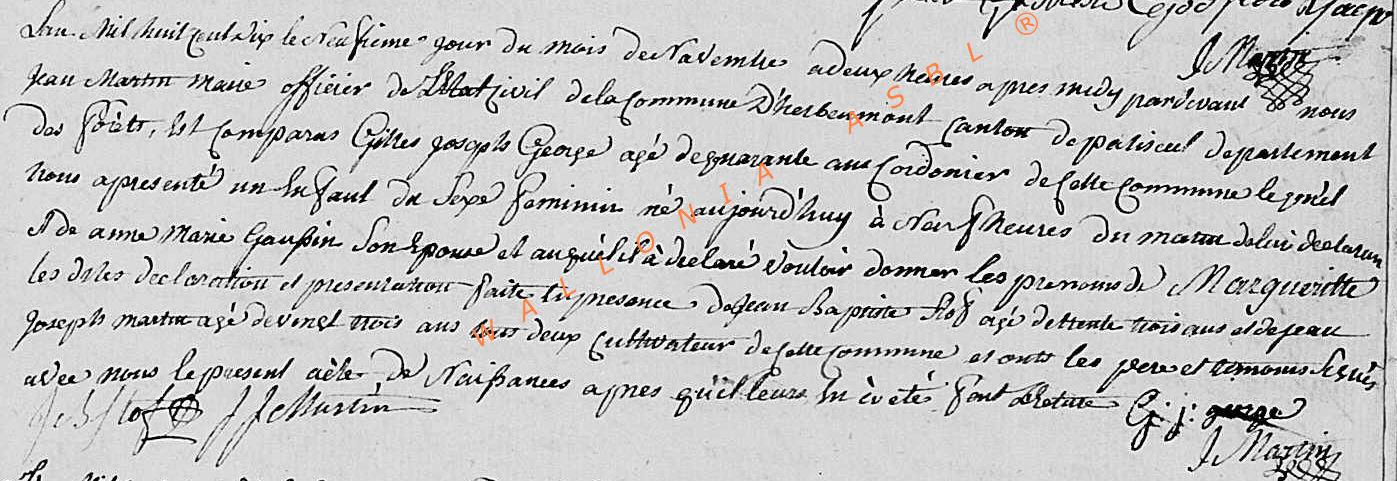 J Martin
L'an Mil huit cent dix le Neufieme jour du mois de Novembre a deux heures apres midy pardevant nous
Jean Martin Maire officier de L'Etat Civil de la Commune D'herbeumont Canton de paliseul departement
des forêts, Est Comparus Gilles joseph George agé de quarante ans Cordonier de Cette Commune lequel
Nous a presenté un Enfant du Sexe feminin né aujourd'huy à Neuf heures du matin de lui declarant
et de anne Marie Gaussin Son Epouse et auquél il à declaré vouloir donner les prenoms de Margueritte
les dites declaration et presentation faite En presance de Jean Baptiste Stof agé de trente trois ans et de jean
joseph martin agé de vingt trois ans tous deux Cultivateur de Cette Commune et ont les pere et temoins Signés
avec nous le present acte de Naissances apres qu'il leurs En à eté fait Lecture G: j: george
J B Stof J J Martin
J Martin
WALLONIA ASBL ®